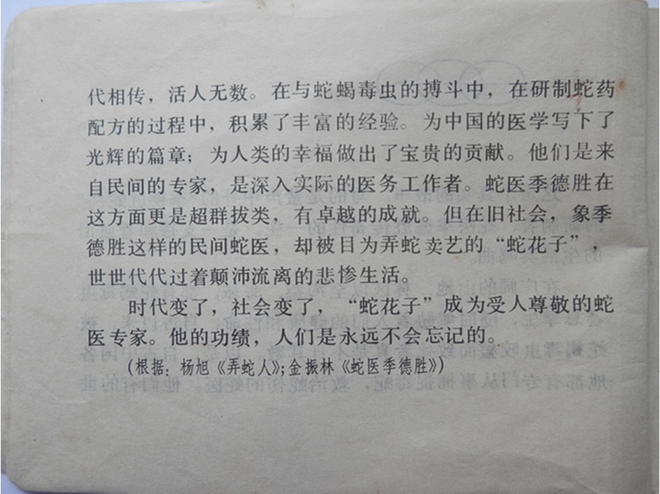 代相传，活人无数。在与蛇蝎毒虫的搏斗中，在研制蛇药
配方的过程中，积累了丰富的经验。为中国的医学写下了
光辉的篇章；为人类的幸福做出了宝贵的贡献。他们是来
自民间的专家，是深入实际的医务工作者。蛇医季德胜在
这方面更是超群拔类，有卓越的成就。但在旧社会，象季
德胜这样的民间蛇医，却被目为弄蛇卖艺的“蛇花子”，
世世代代过着颠沛流离的悲惨生活。
时代变了，社会变了，“蛇花子”成为受人尊敬的蛇
医专家。他的功绩，人们是永远不会忘记的。
(根据：杨旭《弄蛇人》；金振林《蛇医季德胜》)